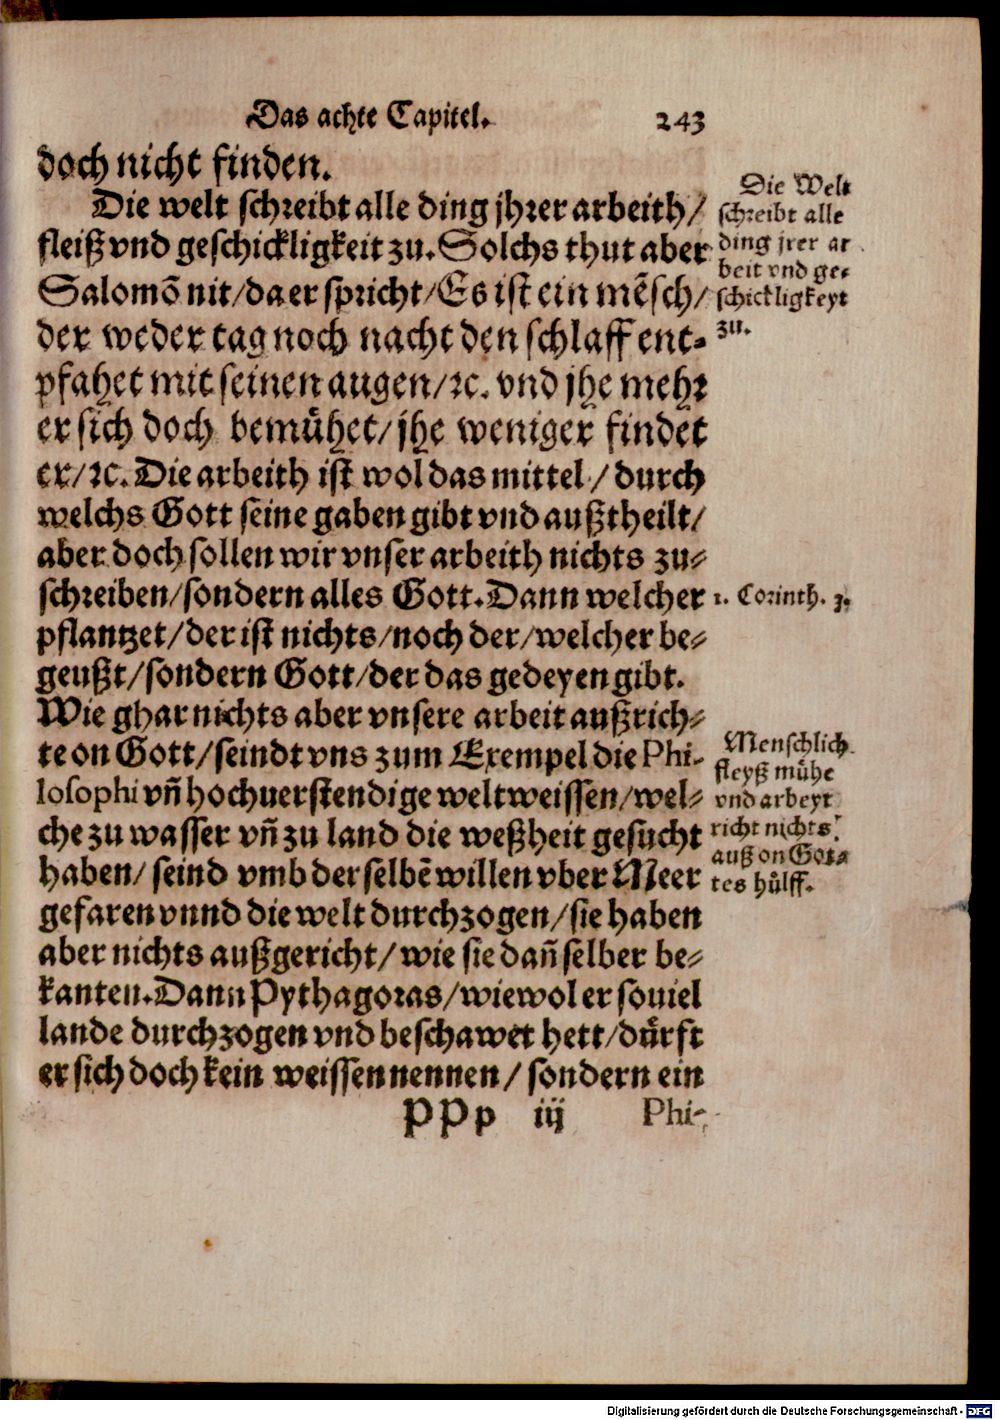 Das achte Capitel. 243
doch nicht finden.
Die welt schreibt alle ding jhrer arbeith/
fleiß vnd geschickligkeit zu. Solchs thut aber
Salomõ nit/ da er spricht/ Es ist ein mẽsch/
der weder tag noch nacht den schlaff ent-
pfahet mit seinen augen/ ꝛc. vnd jhe mehr
er sich doch bemuͤhet/ jhe weniger findet
er/ ꝛc. Die arbeith ist wol das mittel/ durch
welchs Gott seine gaben gibt vnd außtheilt/
aber doch sollen wir vnser arbeith nichts zu-
schreiben/ sondern alles Gott. Dann welcher
pflantzet/ der ist nichts/ noch der/ welcher be-
geußt/ sondern Gott/ der das gedeyen gibt.
Wie ghar nichts aber vnsere arbeit außrich-
te on Gott/ seindt vns zum Exempel die Phi-
losophi vñ hochuerstendige weltweissen/ wel-
che zu wasser vñ zu land die weßheit gesucht
haben/ seind vmb derselbẽ willen vber Meer
gefaren vnnd die welt durchzogen/ sie haben
aber nichts außgericht/ wie sie dañ selber be-
kanten. Dann Pythagoras/ wiewol er souiel
lande durchzogen vnd beschawet hett/ duͤrft
er sich doch kein weissen nennen/ sondern ein
PPp iij Phi-
Die Welt
schreibt alle
ding jrer ar
beit vnd ge-
schickligkeyt
zu.
1. Corinth. 3.
Menschlich
fleyß muͤhe
vnd arbeyt
richt nichts
auß on Got-
tes huͤlff.
Digitalisierung gefördert durch die Deutsche Forschungsgemeinschaft - DFG